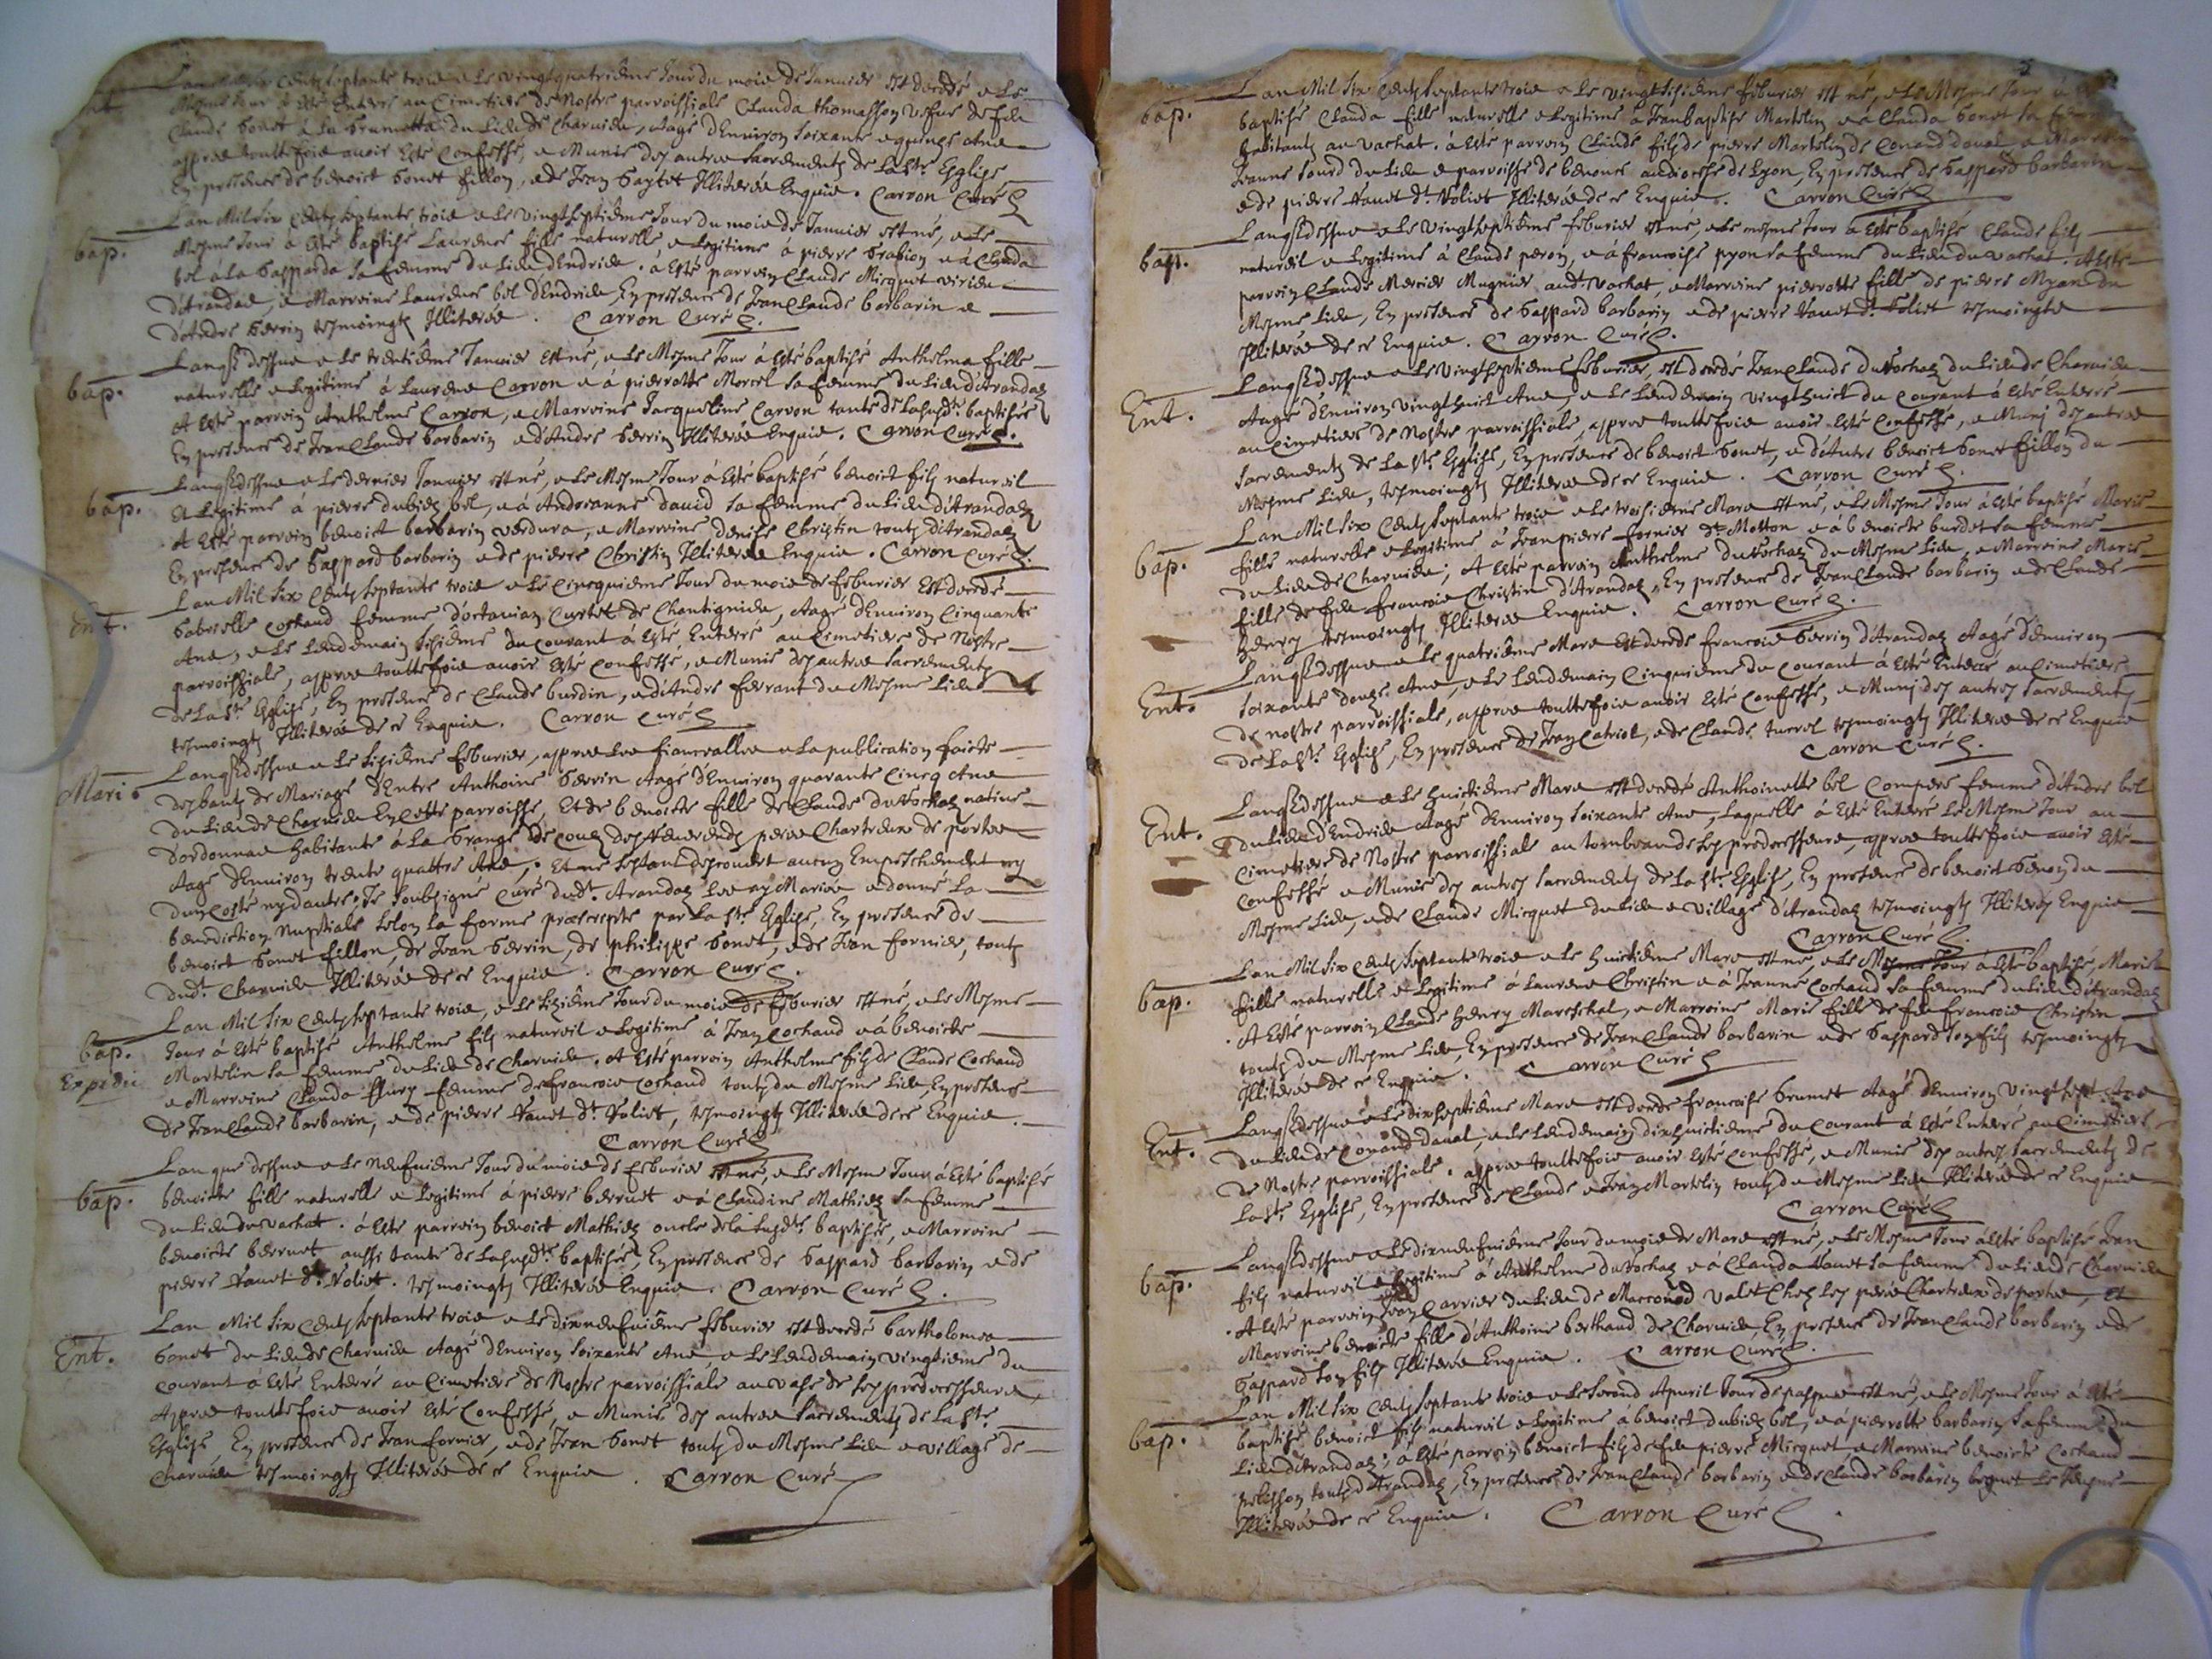 Ent. Lan Mil six centz septante troie e Le vingtquatriême Jour du moie de Januier est decedé e Le
Mesme Jour à Esté Enterré au Cimetiere de Nostre parroissiale Clauda thomasson vefue de feu
Claude bonet à la brumetta du Lieu de Charuieu, Aagé d'Enuiron soixante e quinze Ane
apprae touttefoie auoir Esté Confessé, e Munie des autrae Sacrementz de La Ste Esglise
En presence de benoict bonet fillon, e de Jean Illitérée Enquie. Carron Curé
bap. Lan Mil Six Centz septante troie e Le vingtseptiême Jour du moie de Januier est né, e Le
Mesme Jour à Esté baptisé Laurence fille naturelle e Legitime à pierre e à Clauda
bel à La Gasparda sa femme du Lieu d'Endrieu. à Esté parroin Claude Micquet viriou
d'Arandae, e Marroine Laurence bel d'Endrieu, En presence de Jean Claude barbarin e
d'Andre Gerrin tesmoingtz Illitérée. Carron Curé.
bap. Lan q. dessue e Le trentiême Januier est né, e Le Mesme Jour à Esté baptisé Anthelma fille
naturelle e Legitime à Laurene Carron e à pierrotte Morcel sa femme du Lieu d'Arandaz
A Esté parroin Anthelme Carron, e Marroine Jacqueline Carron tante de La baptisée
En presence de Jean Claude barbarin e d'Andre Gerrin Illitérée Enquie. Carron Curé.
bap. Lan q. dessue e Le dernier Januier est né, e Le Mesme Jour à Esté baptisé benoict filz naturel
Et Legitime à pierre dubiez bel, e à Andreanne dauid sa femme du Lieu d'Arandaz
A Esté parroin benoict barbarin verdura, e Marroine denise Christin toutz d'Arandaz
En presence de Gaspard barbarin e de pierre Christin Illitérée Enquie. Carron Curé.
Ent. Lan Mil Six Centz septante troie e Le Cincquieme Jour du moie de feburier Est decedé
Gabrielle Cochand femme d'octauian Curtet de Chantignieu, Aagé d'Enuiron Cinquante
Ane, e Le Lendemain Sixiême du Courant à Esté Enterré au Cimetiere de Nostre
parroissiale, apprae touttefoie auoir Esté Confessé, e Munie des autrae Sacrementz
de La Ste Esglise, En presence de Claude burdin, e d'Andre ferrant du Mesme Lieu
tesmoingtz Illitérée de ce Enquie. Carron Curé
Mariè Lan q. dessue e Le Sixiême feburier, apprae Lee fiancaillee e La publication faicte
des bantz de Mariage d'Entre Anthoine Gerrin Aagé d'Enuiron quarante Cincq Ane
du Lieu de Charuieu En Cette parroisse, Et de benoiste fille de Claude duTochaz natiue
d'ordonnae habitante à La Grange de des Reuerendz perae Chartreux de portae
Aagé d'Enuiron trente quattre Ane, Et ne sestant descouuert aucun Empeschement ny
dun Costé ny dautre. Je soubsigné Curé dudt. Arandaz Lee ay Mariée e donné La
benediction Nuptiale selon La forme praescripte par La Ste Esglise, En presence de
benoict bonet fillon, de Jean Gerrin, de philippe bonet, e de Jean fornier, toutz
dudt. Charuieu Illitérée de ce Enquie. Carron Curé.
bap. Expedié Lan Mil Six Centz septante troie, e Le Sixiême Jour du moie de feburier est né, e Le Mesme
Jour à Esté baptisé Anthelme filz naturel e Legitime à Jean Cochand e à benoiste
Martelin sa femme du Lieu de Charuieu. A Esté parroin Anthelme filz de Claude Cochand
e Marroine Clauda femme de francoie Cochand toutz du Mesme Lieu, En presence
de Jean Claude barbarin, e de pierre tenet dt. Voliet, tesmoingtz Illitérée de ce Enquie.
Carron Curé
bap. Lan que dessue e Le Neufuiême Jour du moie de feburier est né, e Le Mesme Jour à Esté baptisé
benoiste fille naturelle e Legitime à pierre berruet e à Claudine Mathiez sa femme
du Lieu du vachat. à Esté parroin benoict Mathiez oncle de la Susdte. baptisée, e Marroine
benoiste berruet aussi tante de La Susdte. baptisée, En presence de Gaspard barbarin e de
pierre tenet dt. Voliet. tesmoingtz Illitérée Enquie. Carron Curé.
Ent. Lan Mil Six Centz septante troie e Le dixneufuiême feburier est decedé bartholomee
bonet du Lieu de Charuieu Aagé d'Enuiron Soixante Ane e Le Lendemain vingtieme du
Courant à Esté Enterré au Cimetiere de Nostre parroissiale au vase de ses predecesseure,
Apprae touttefoie auoir Esté Confessé, e Munie des autrae Sacrementz de La Ste
Esglise, En presence de Jean fornier, e de Jean bonet toutz du Mesme Lieu e village de
Charuieu tesmoingtz Illitérée de ce Enquie. Carron Curé
bap. Lan Mil Six Centz septante troie e Le vingtsixiême feburier est né, e Le Mesme Jour à
baptisé Clauda fille naturelle e Legitime à Jean baptiste Martelin e à Clauda bonet sa
habitantz au vachat. à Esté parroin Claude filz de pierre Martelin de Conand daual e Marroine
Jeanne sourd du Lieu e parroisse de benonce au diocèse de Lyon, En presence de Gaspard barbarin
e de pierre tenet dt. Voliet Illitérée de ce Enquie. Carron Curé
bap. Lan q. dessue e Le vingtseptiême feburier est né, e Le mesme Jour à Esté baptisé Claude filz
naturel e Legitime à Claude peron, e à francoise pyon sa femme du Lieu du vachat. A Esté
parroin Claude Mercier Mugnier audt. vachat, e Marroine pierrotte fille de pierre Myan du
Mesme Lieu, En presence de Gaspard barbarin e de pierre tenet dt. Voliet tesmoingtz
Illitérée de ce Enquie. Carron Curé.
Ent. Lan q. dessue e Le vingtseptiême feburier, est decedé Jean Claude duTochaz du Lieu de Charuieu
Aagé d'Enuiron vingthuict Ane, e Le Lendemain vingthuict du Courant à Esté Enterré
au Cimetiere de Nostre parroissiale, apprae touttefoie auoir Esté Confessé, e Muny des autrae
Sacrementz de La Ste Esglise, En presence de benoict bonet, e d'Autre benoict bonet fillon du
Mesme Lieu, tesmoingtz Illitérée de ce Enquie. Carron Curé.
bap. Lan Mil Six Centz septante troie e Le troisieme Mare est né, e Le Mesme Jour à Esté baptisé Marie
fille naturelle e Legitime à Jean pierre fornier dt. Motton e à benoiste burdet sa femme
du Lieu de Charuieu; A Esté parroin Anthelme duTochaz du Mesme Lieu, e Marroine Marie
fille de feu francoie Christin d'Arandaz, En presence de Jean Claude barbarin e de Claude
henry tesmoingtz Illitérée Enquie. Carron Curé.
Ent. Lan q. dessue e Le quatriême Mare Est decedé francoie Gerrin d'Arandaz Aagé d'Enuiron
soixante douze Ane, e Le Lendemain Cinquieme du Courant à Esté Enterré au Cimetiere
de nostre parroissiale, apprae touttefoie auoir Esté Confessé, e Muny des autres Sacrementz
de La Ste. Esglise, En presence de Jean Catriol, e de Claude tuernel tesmoingtz Illitérée de ce Enquie
Carron Curé.
Ent. Lan q. dessue e Le huictiême Mare est decedé Anthoinette bel Compere femme d'Andre bel
du Lieu d'Endrieu Aagé d'Enuiron soixante Ane, Laquelle à Esté Enterré Le Mesme Jour au
Cimetiere de Nostre parroissiale au tombeau de ses predecesseure, apprae touttefoie auoir Esté
Confessé e Munie des autres Sacrementz de La Ste. Esglise, En presence de benoict du
Mesme Lieu, e de Claude Micquet du Lieu e village d'Arandaz tesmoingtz Illitérée Enquie
Carron Curé.
bap. Lan Mil Six Centz septante troie e Le huictiême Mare est né, e Le Mesme Jour à Esté baptisé, Marie
fille naturelle e Legitime à Laurene Christin e à Jeanne Cochand sa femme du Lieu d'Arandaz
A Esté parroin Claude henry Mareschal, e Marroine Marie fille de feu francoie Christin
toutz du Mesme Lieu, En presence de Jean Claude barbarin e de Gaspard son filz tesmoingtz
Illitérée de ce Enquie. Carron Curé
Ent. Lan q. dessue e Le dixseptiême Mare est decedé francoise brunet Aagé d'Enuiron vingtsept Ane
du Lieu de Conand daual, e Le Lendemain dixhuictieme du Courant à Esté Enterré au Cimetiere
de Nostre parroissiale. apprae touttefoie auoir Esté Confessé, e Munie des autres Sacrementz de
La Ste. Esglise, En presence de Claude e Jean Martelin toutz du Mesme Lieu Illitérée de ce Enquie
Carron Curé
bap. Lan q. dessue e Le dixneufuiême Jour du moie de Mare est né, e Le Mesme Jour à Esté baptisé Jean
filz naturel e Legitime à Anthelme duTochaz e à Clauda tenet sa femme du Lieu de Charuieu
A Esté parroin Jean Carrier du Lieu de Marcoued valet Chez Les perae Chartreux de portae, et
Marroine benoiste fille d'Anthoine berthaud de Charuieu, En presence de Jean Claude barbarin e de
Gaspard son filz Illitérée Enquie. Carron Curé.
bap. Lan Mil Six Centz septante troie e Le second Apuril Jour de pasque est né, e Le Mesme Jour à Esté
baptisé benoict filz naturel e Legitime à benoict dubiez bel, e à pierrotte barbarin sa femme du
Lieu d'Arandaz; à Esté parroin benoict filz de feu pierre Micquet e Marroine benoiste Cochand
pelisson toutz d'Arandaz, En presence de Jean Claude barbarin e de Claude barbarin
Illitérée de ce Enquie. Carron Curé.